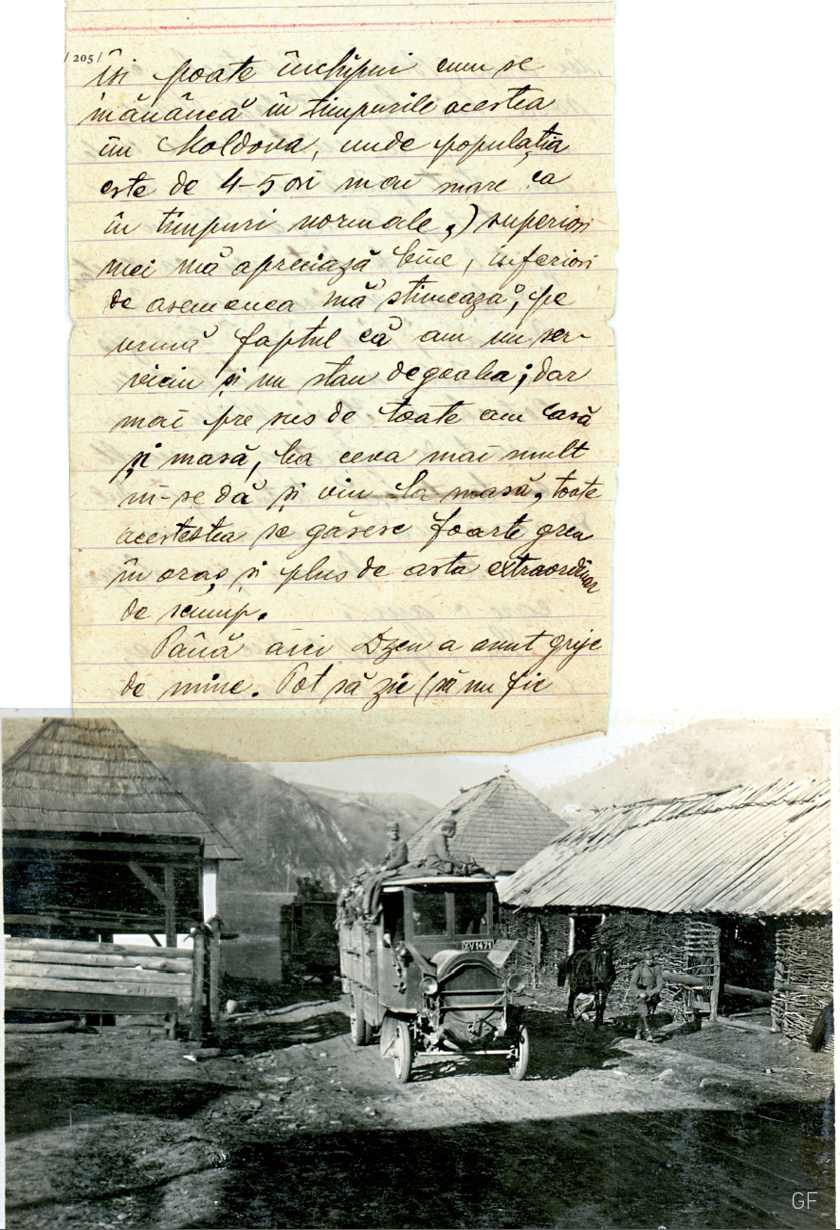 / 205 /
Își poate închipui cum se
mănâncă în timpurile acestea
în Moldova, unde populația
este de 4-5 ori mai mare ca
în timpuri normale,) superiori
mei mă apreciază bine, inferiori
de asemenea mă stimează, pe
urmă faptul că am un ser-
viciu și nu stau degeaba; dar
mai pre sus de toate am casă
și masă, ba ceva mai mult
ni-se dă și vin la masă, toate
acestestea se găsesc foarte greu
în oraș și plus de asta extraordinar
de scump.
Până aici Dzeu a avut grije
de mine. Pot să zic (să nu fie
XV 1471
GF